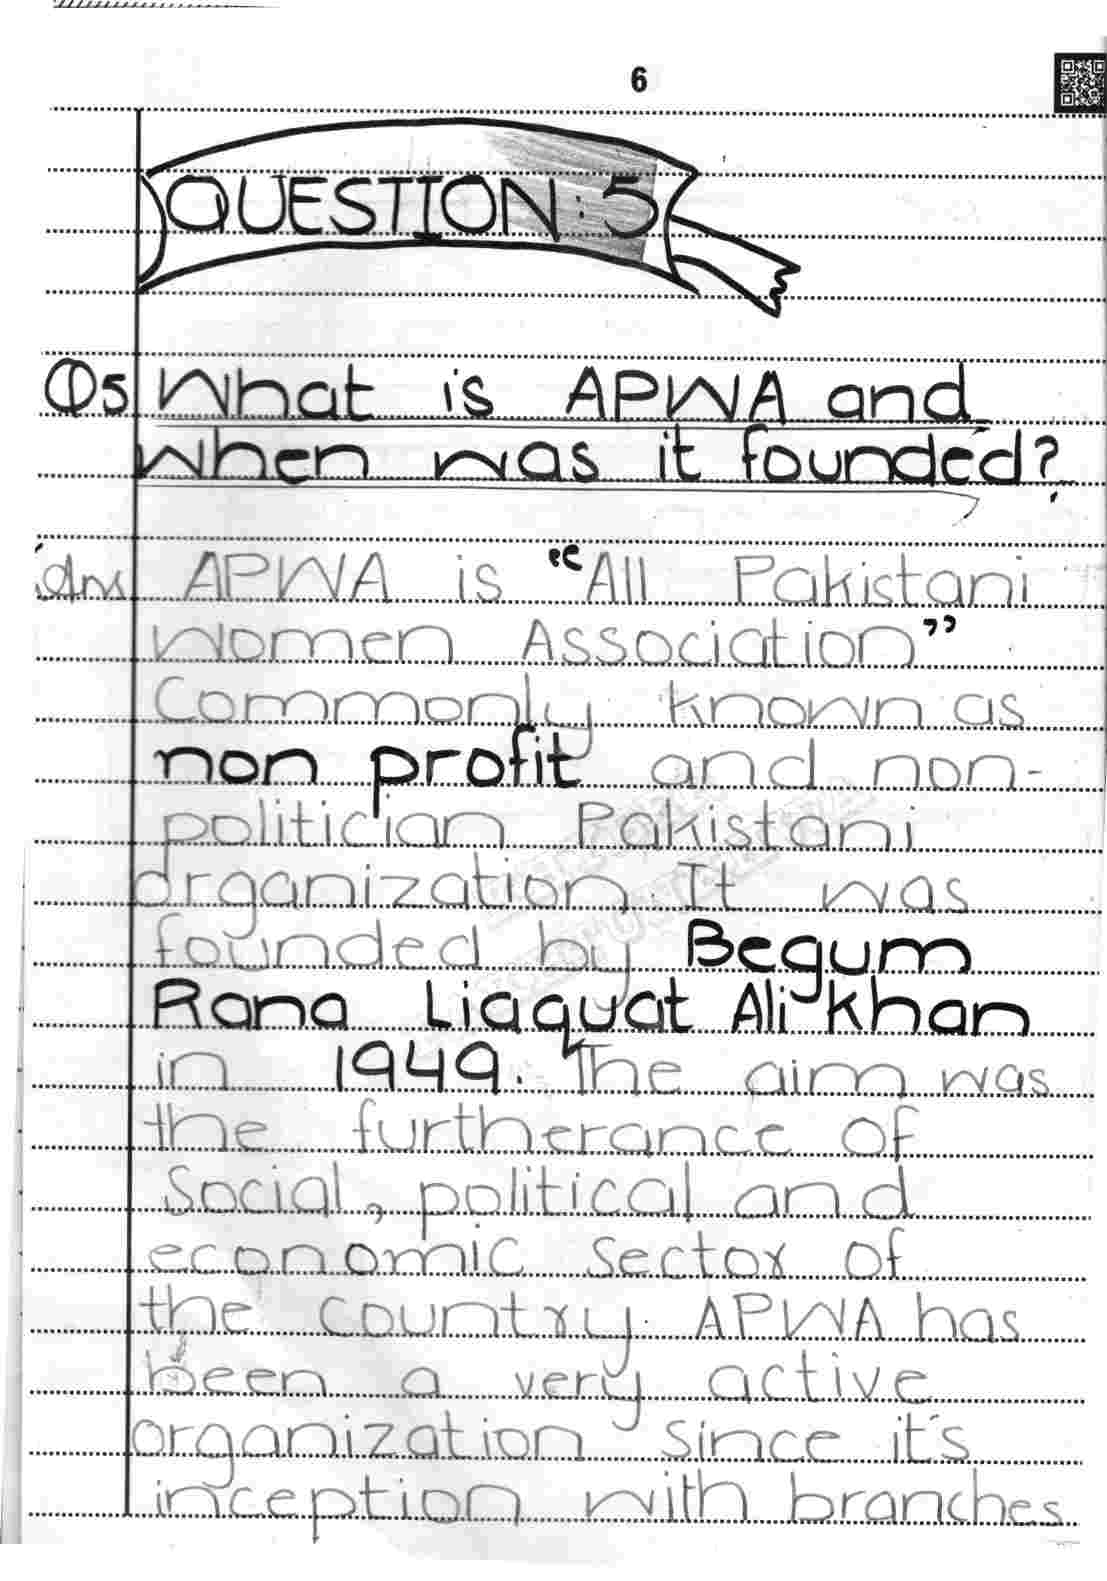 6
QUESTION: 5
Q5 What is APWA and
when was it founded?
Ans APWA is "All Pakistani
Women Association"
Commonly known as
non profit and non-
politician Pakistani
organization. It was
founded by Begum
Rana Liaquat Ali Khan
in 1949. The aim was
the furtherance of
Social, political and
economic sector of
the country. APWA has
been a very active
organization since it's
inception with branches